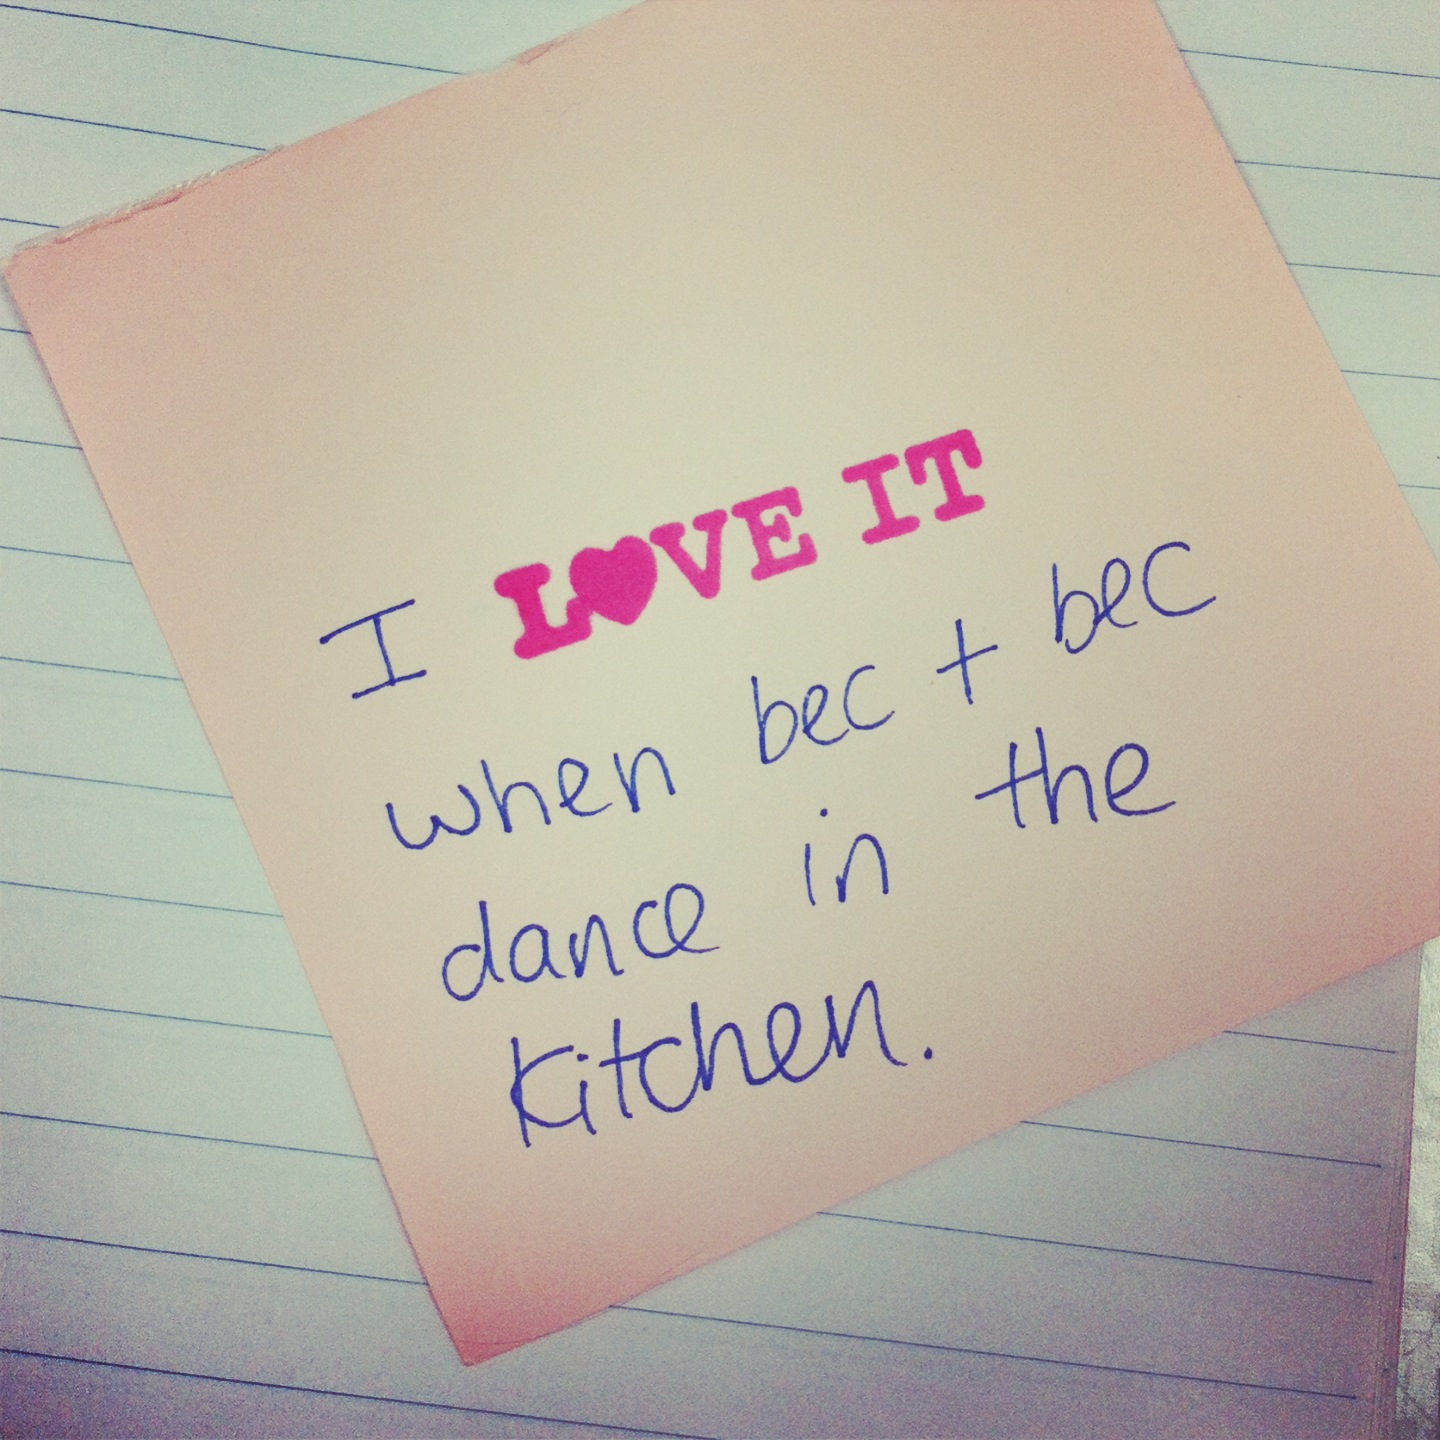 I LOVE IT
when bec + bec
dance in the
kitchen.